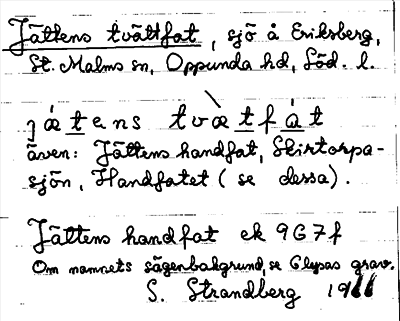 Jättens tvättfat, sjö å Eriksberg,
St. Malms sn, Oppunda hd, Söd. l.
jǽtens tvætfát
även: Jättens handfat, Skirtorpa-
sjön, Handfatet (se dessa).
Jättens handfat ek 9G7f
Om namnets sägenbakgrund, se Clysas grav.
S. Strandberg 1966